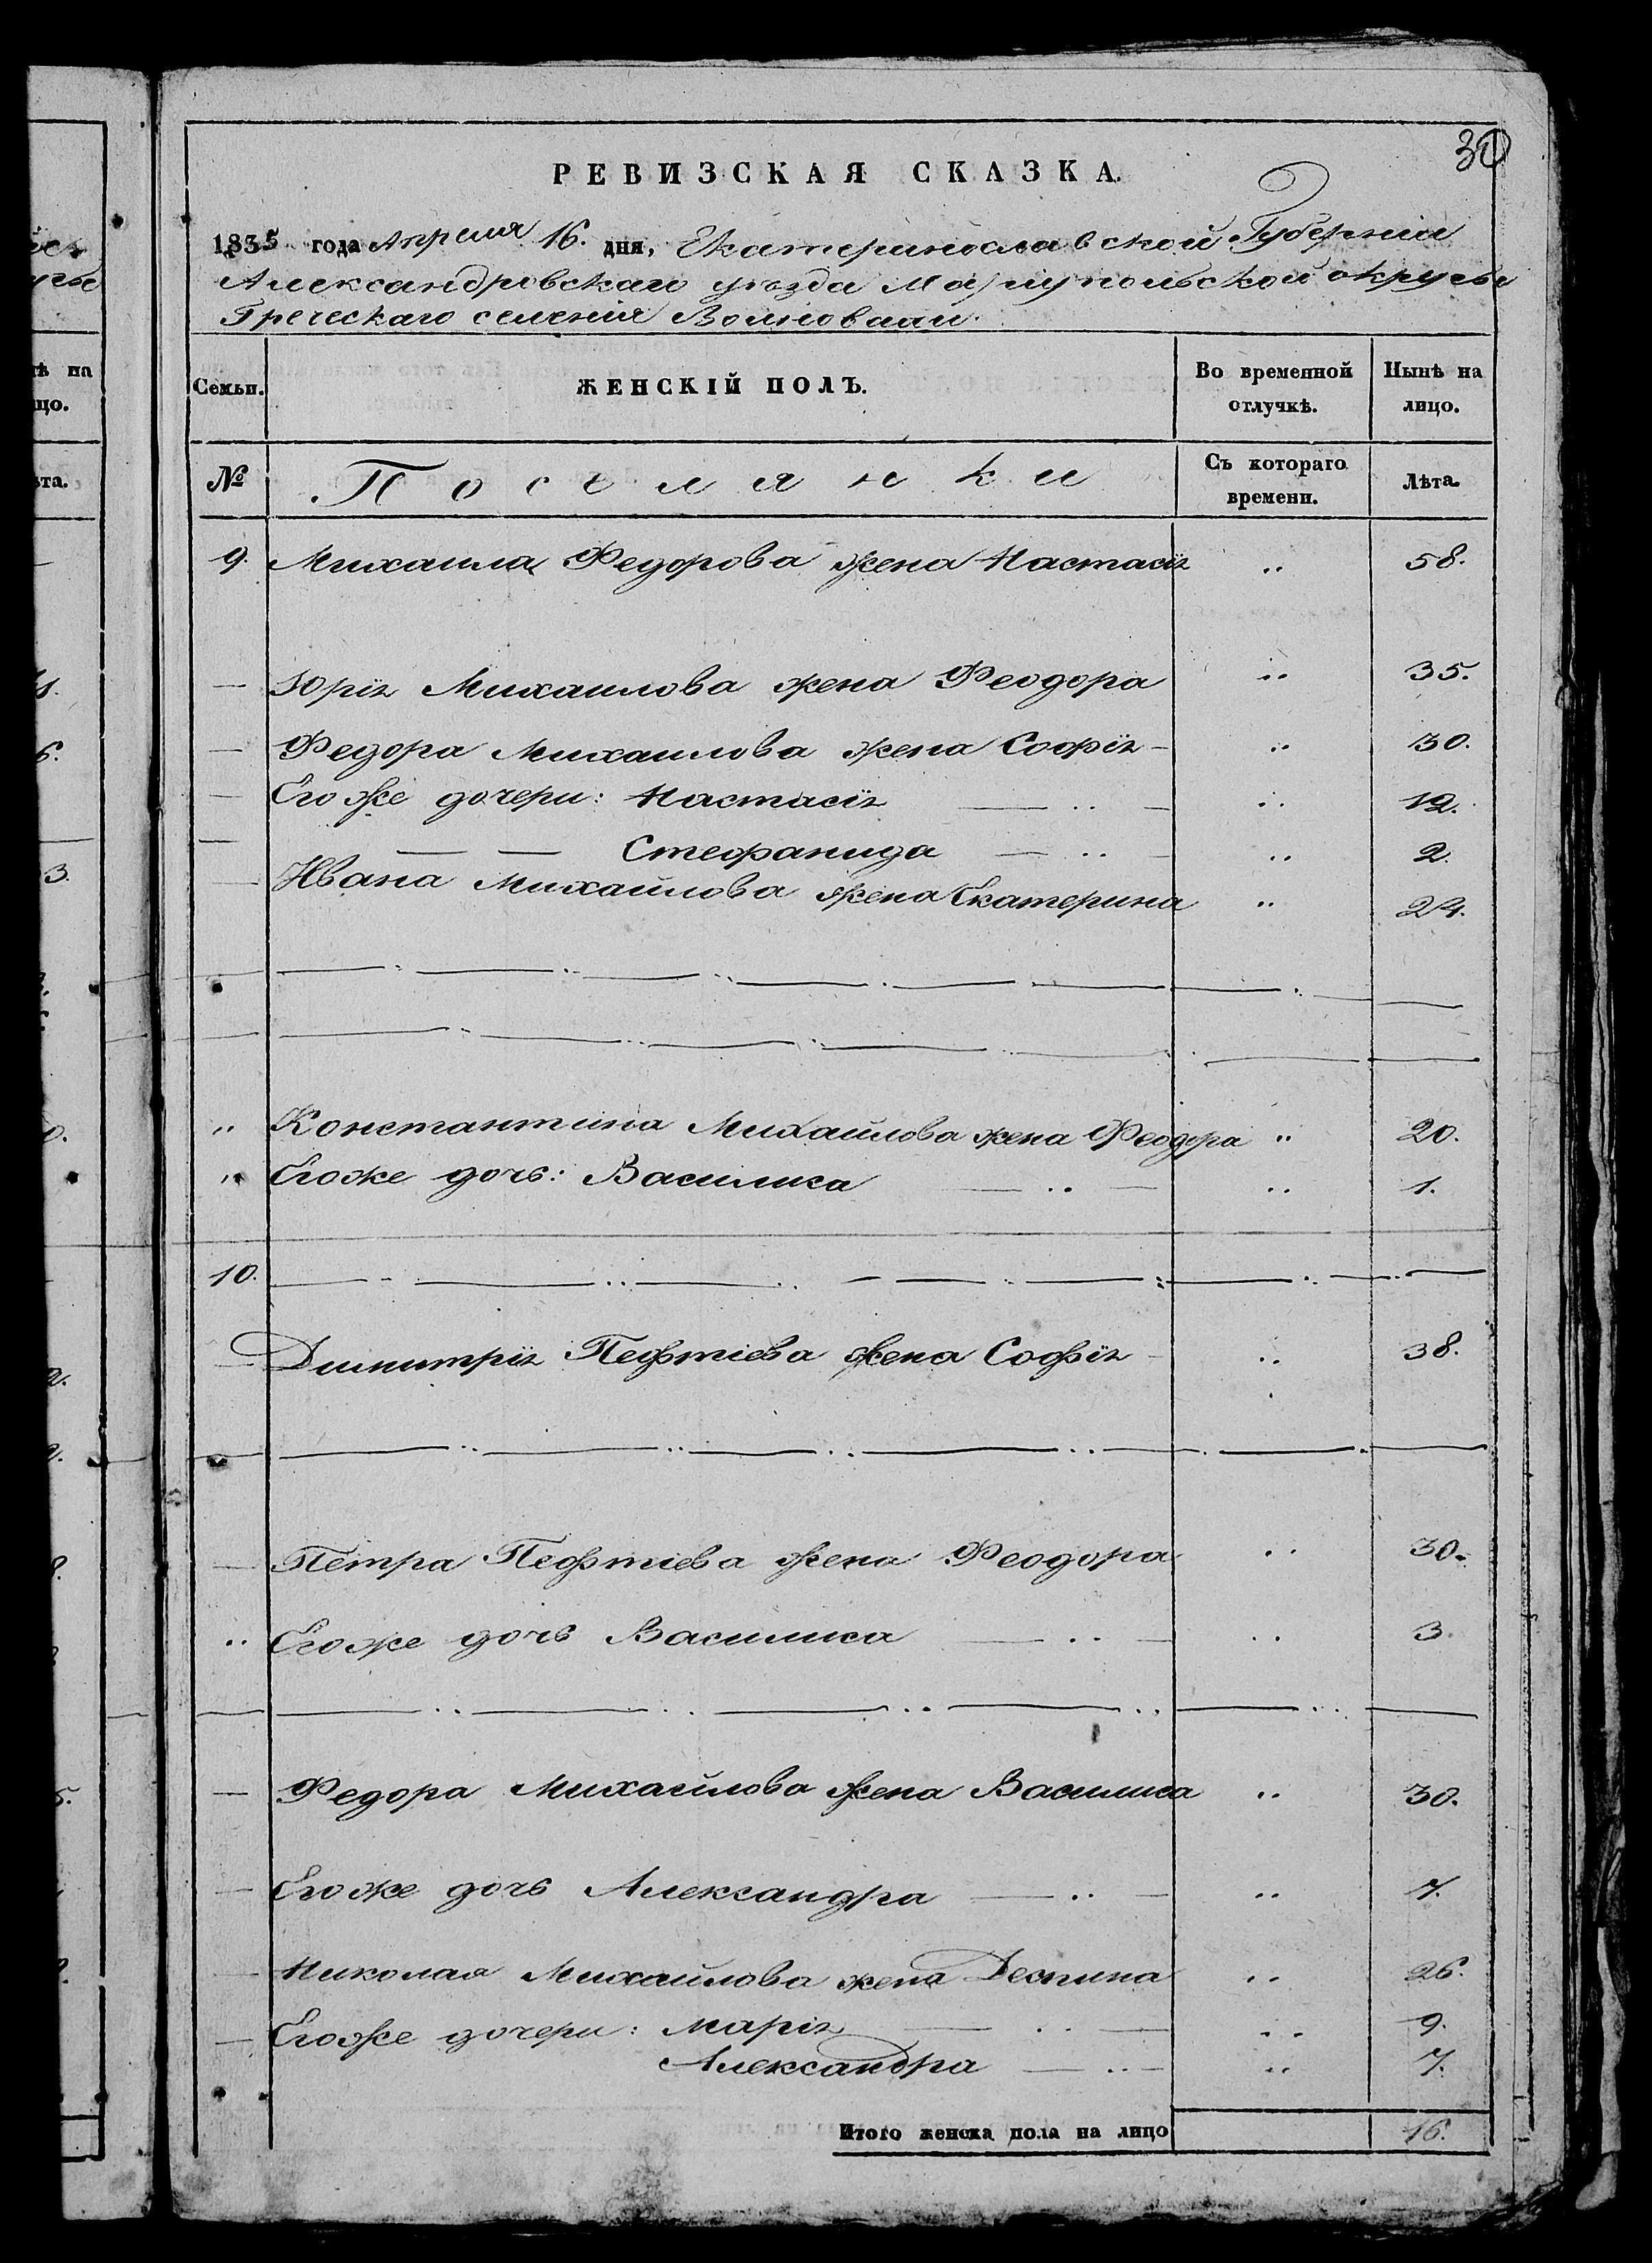 30
РЕВИЗСКАЯ СКАЗКА.
1835 года Апреля 16. дня, Екатеринославской Губерніи
Александровскаго уѣзда Маріупольской округи
Греческаго селенія
Семьи. ЖЕНСКІЙ ПОЛЪ. Во временной отлучкѣ. Нынѣ на лицо.
№ Поселянки Съ котораго времени. Лѣта.
9. Михаила Федорова жена Настасія „ 58.
— Юрія Михаилова жена Феодора „ 35.
— Федора Михаилова жена Софія — „ 30.
— Его же дочери: Настасія — „ — „ 12.
— — — Стефанида — „ — „ 2.
— Ивана Михайлова жена Екатерина „ 24.
„ Константина Михайлова жена Феодора „ 20.
„ Егоже дочь: Василиса — „ — „ 1.
10.
— Димитрія Пефтіева жена Софія — „ 38.
— Петра Пефтіева жена Феодора „ 30.
„ Егоже дочь Василиса — „ — „ 3.
— Федора Михайлова жена Василиса „ 30.
— Егоже дочь Александра — „ — „ 7.
— Николая Михайлова жена Деспина „ 26.
— Егоже дочери: Марія — „ — „ 9.
Александра — „ — „ 7.
Итого женска пола на лицо 16.